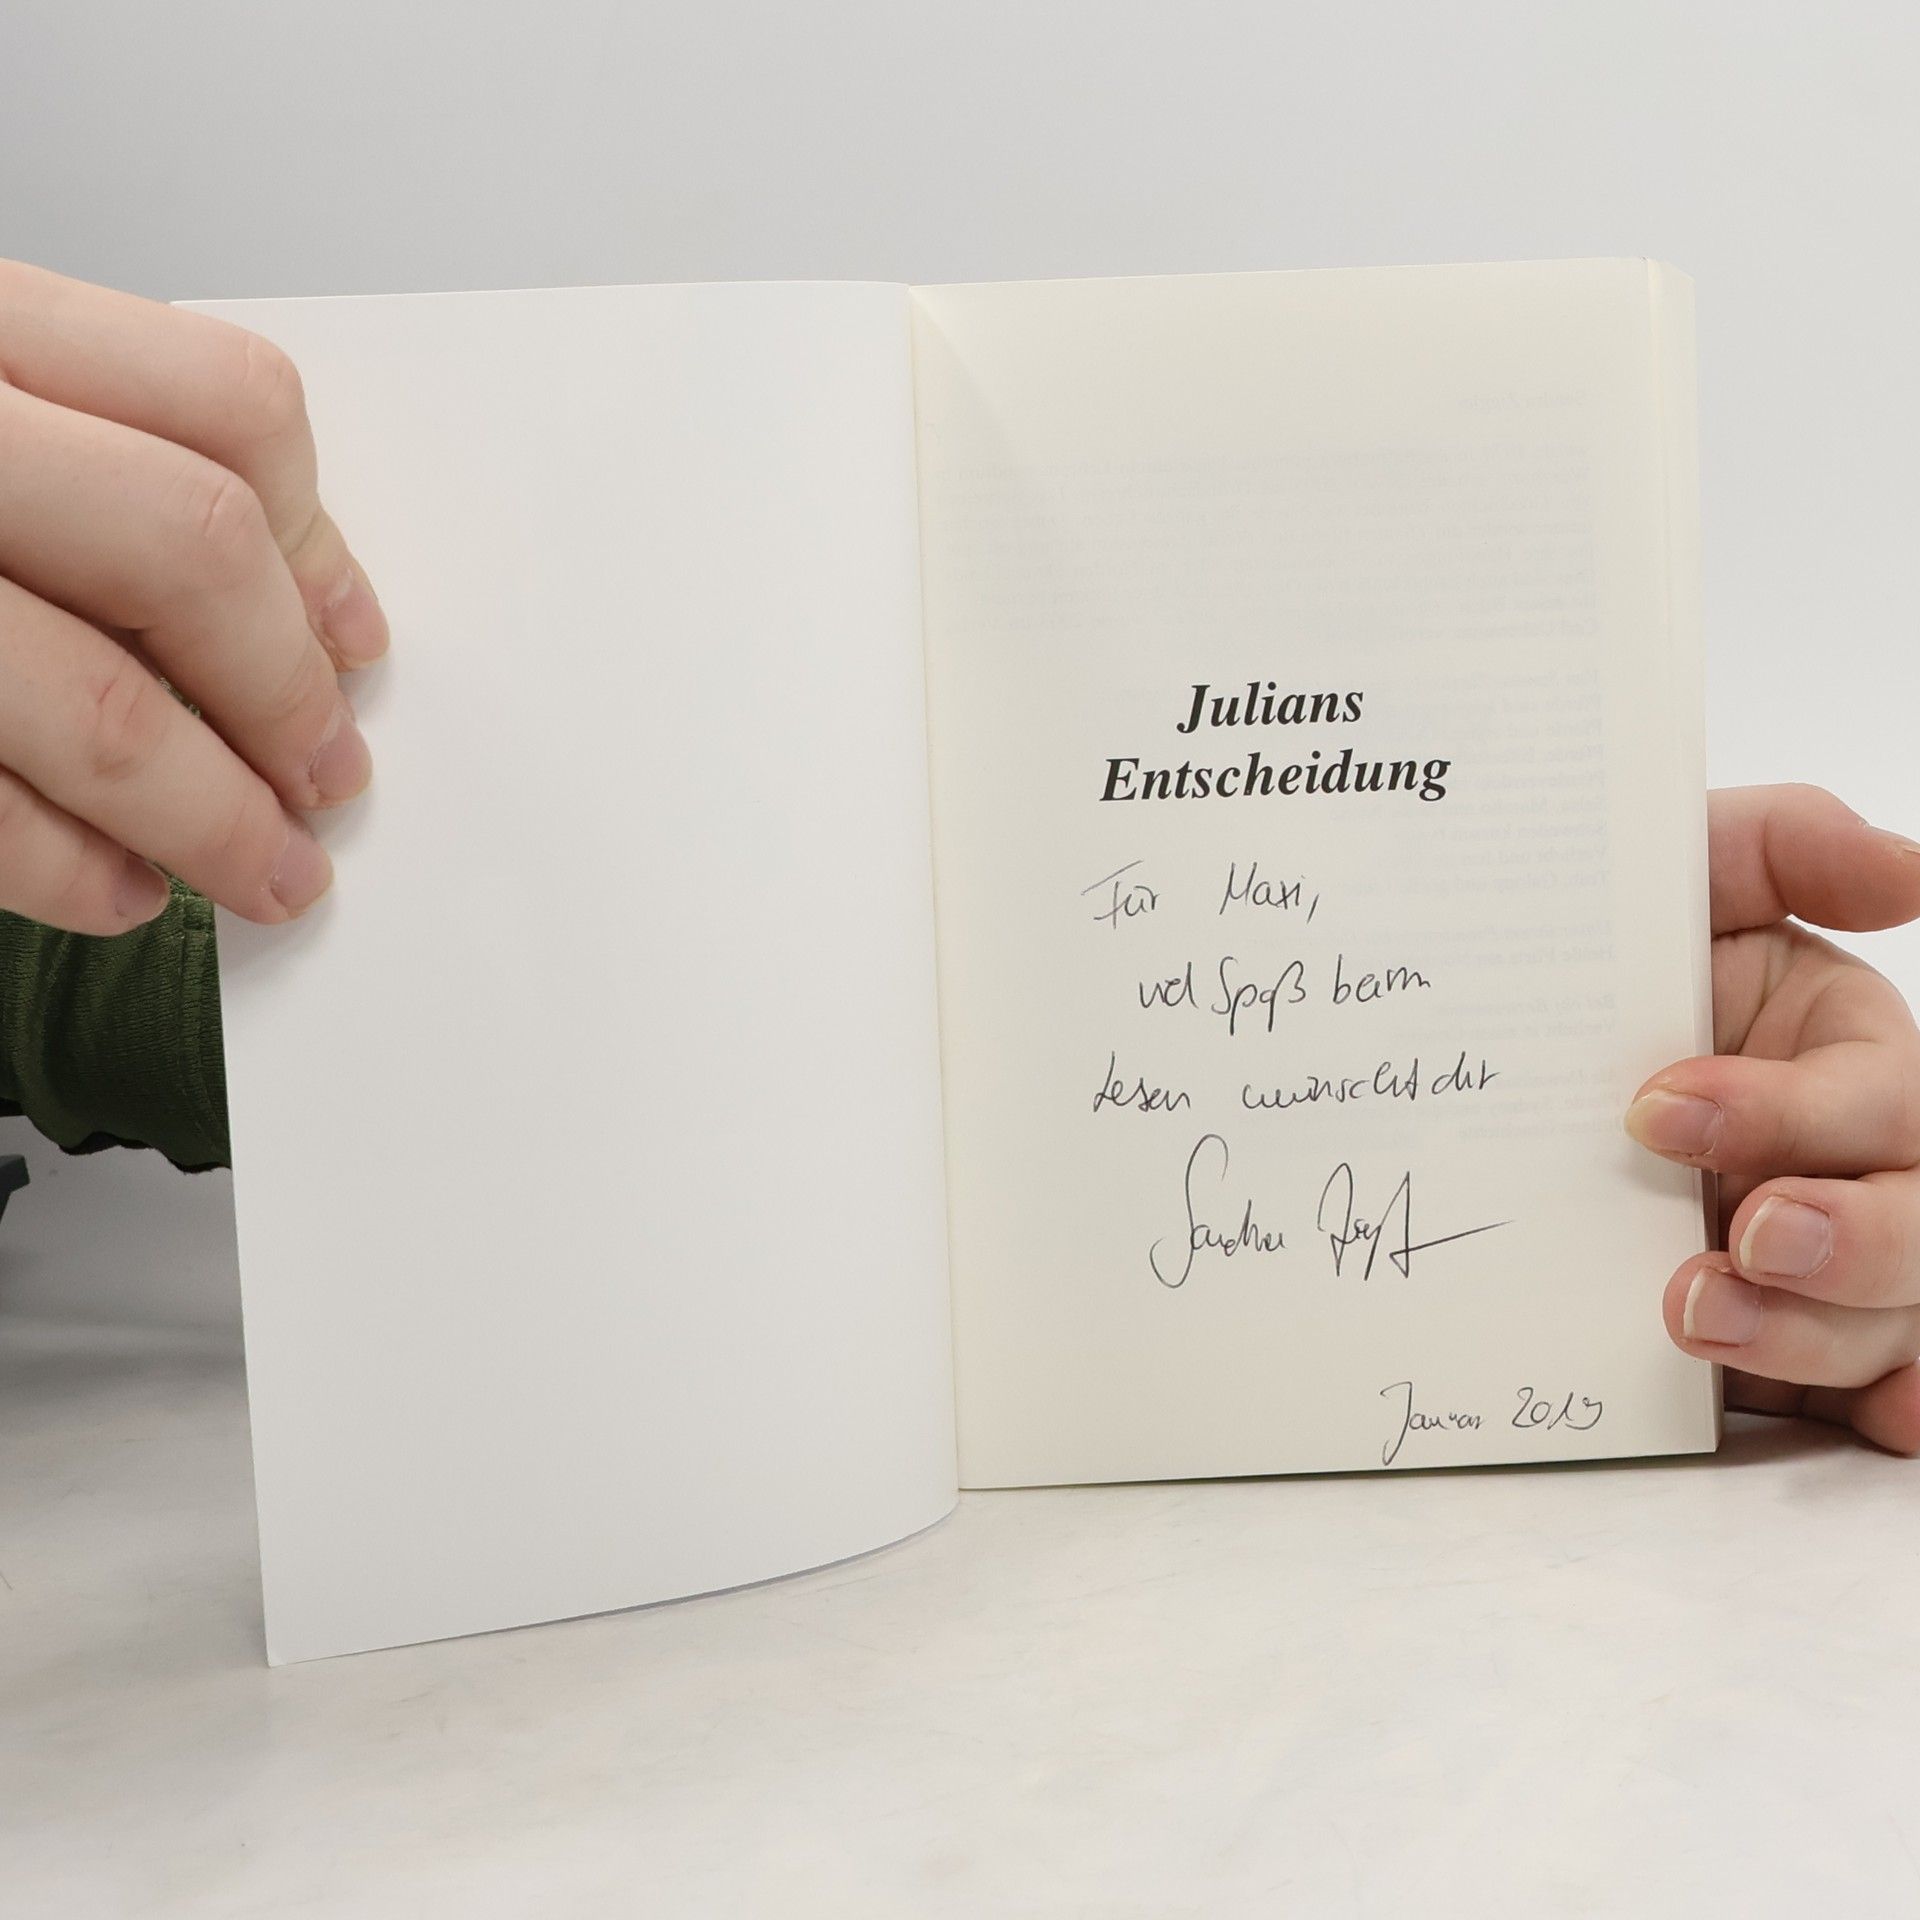 Julians
Entscheidung
Für Maxi,
viel Spaß beim
Lesen wünscht dir
Sandra
Januar 2019